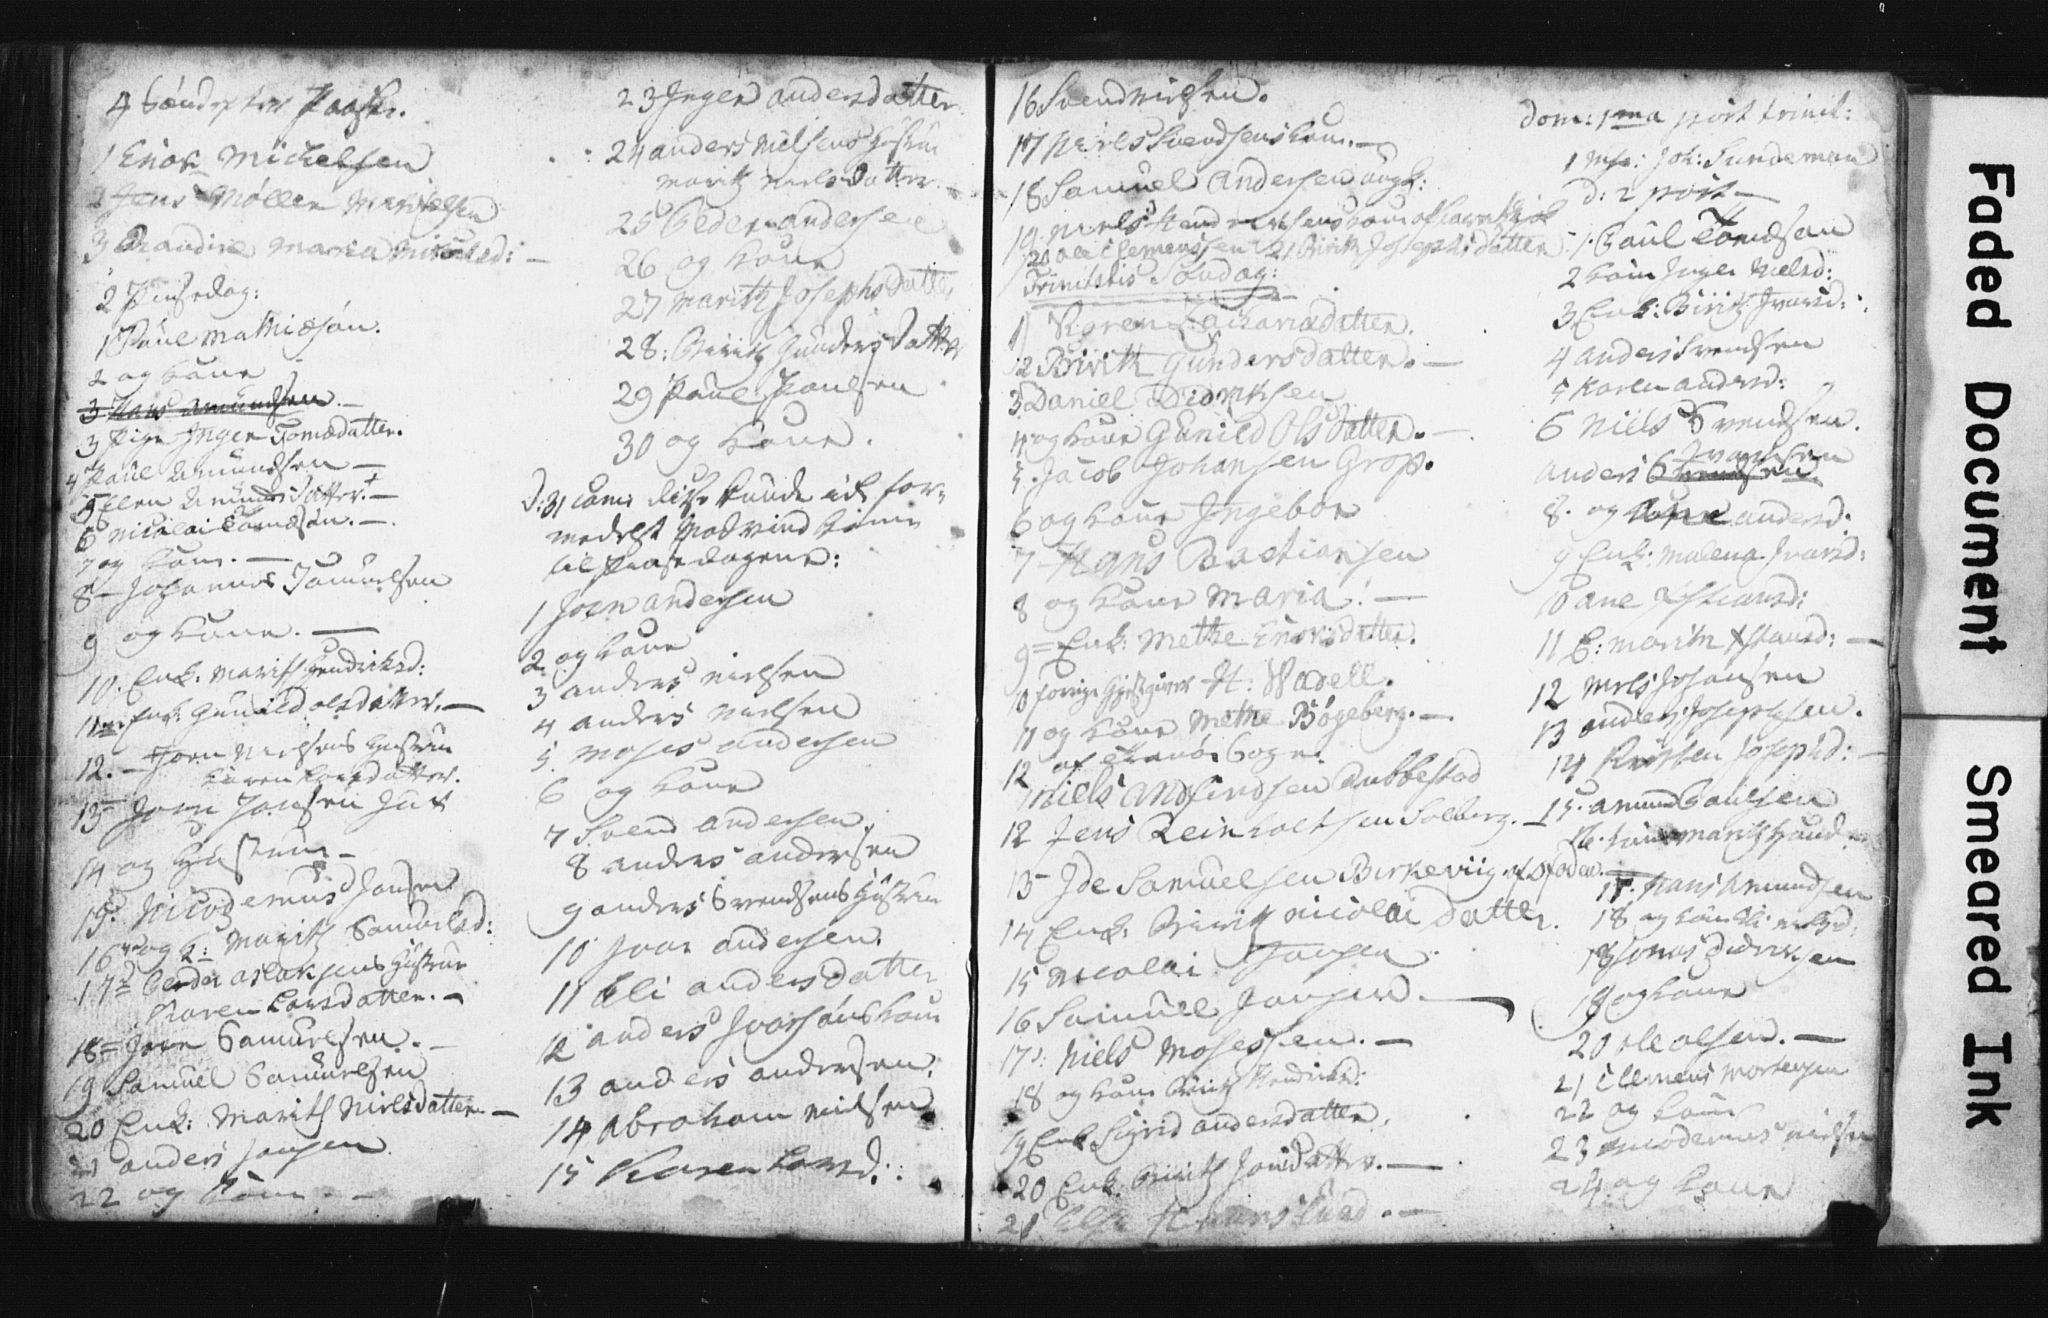 4 Søndag Paaske.
1 Enok Michelsen
2 Jens Møller Michelsen
3 Maria
2 Pinsedag:
1 Paul Mathiæsøn.
2 og Kone
3 Hans Amundsen
3 Pige Inger Tomædatter.
4 Paul Amundsen
5 Ellen Amundsdatter.
6 Nicolai Tomæsøn.
7 og Kone.
8 Johannes Samuelsen
9 og Kone.
10. Enk: Marith Hendricksd:
11 Enk: Gunild Olsdatter.
12. Joen Nielsens Hustrue
Karen Larsdatter.
13 Joen Jonsen
14 og Hustrue
15. Nicodemus Jonsen
16 og K: Marith Samuelsd:
17 Peder Aslaksens Hustrue
Karen Larsdatter.
18 Joen Samuelsen.
19 Samuel Samuelsen
20 Enk: Marith Nielsdatter.
21 Anders Jonsen
22 og Kone
23 Inger Andersdatter.
24 Anders Nielsens Hustru
Marith Nielsdatter.
25 Peder Andersen
26 og Kone
27 Marith Josephsdatter
28: Birith Gundersdatter
29 Paul Paulsen
30 og Kone.
D: 31 som disse kunde ick for-
medelst Modvind komme
til Pinsedagene:
1 Joen Andersen
2 og Kone
3 Anders Nielsen
4 Anders Nielsen
5. Moses Andersen
6 og Kone
7 Svend Andersen.
8 Anders Andersen
9 Anders Svendsens Hustrue
10 Ivar Andersen.
11 Eli Andersdatter
12 Anders Ivarsøns Kone
13 Anders Andersen.
14 Abraham Nielsen
15 Karen Larsd:
16 Svend Nielsen.
17 Niels Svendsens Kone.
18 Samuel Andersen
19. Niels
20 Ole Clemensen 21 Birith Josephsdatter
Trinitatis Søndag:
1) Karen Zachariædatter.
2 Birith Gundersdatter.
3. Daniel Didriksen
4 og Kone Gunild Olsdatter.
5. Jacob Johansen Grop.
6 og Kone Ingebor
7 Hans Bastiansen
8 og Kone Maria.
9 Enk: Methe Enoksdatter.
10 forrige Giestgiver H: Wadell.
11 og Kone Methe Bøgeberg.
12 af Sogn.
Niels Andfindsen Rubbestad
12 Jens Reinholtsen Solberg.
13 Ide Samuelsen Birkeviig
14 Enk: Birith Nicolai Datter.
15 Nicolai Jonsen
16 Samuel Jonsen.
17. Niels Mosessen.
18 og Kone Birith Hendricksd:
19 Enk Sigrid Andersdatter.
20 Enk. Birith Jonsdatter.
21 Else
Dom: 1ma post trinit:
1 Joh: Sundeman
D: 2 post
1. Poul Tomæsøn
2 Kone Inger Nielsd:
3 Enk. Birith Ivarsd:
4 Anders Svendsen
5 Karen Andersd:
6 Niels Svendsen.
Ivarsen
Anders Svendsen
8. og Kone Andersd.
9 Enk: Malena Ivarsd:
10 Ane Christiansd:
11 E: Marith Christiansd:
12 Niels Johansen
13 Anders Josephsen.
14 Kirsten Josephd:
15. Amund Paulsen
16. Kone Marith
17. Hans Amundsen
18 og Kone Eli
18 Jonas Didriksen
19 og Kone
20 Ole Olsen.
21 Clemens Mortensen
22 og Kone
23 Nicodemus Nielsen
24. og Kone
Faded Document
Smeared Ink